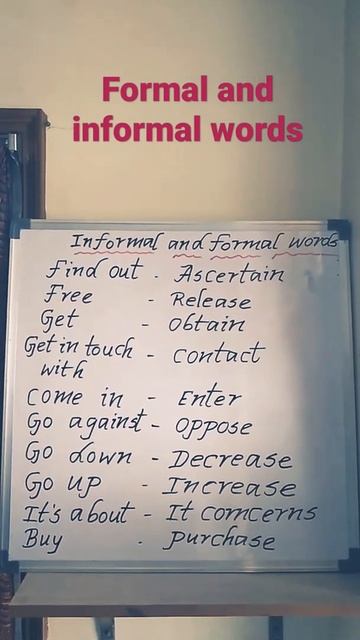 Formal and
informal words
Informal and formal words
Find out - Ascertain
Free - Release
Get - Obtain
Get in touch - Contact
with
Come in - Enter
Go against - Oppose
Go down - Decrease
Go up - Increase
It's about - It comcerns
Buy - Purchase